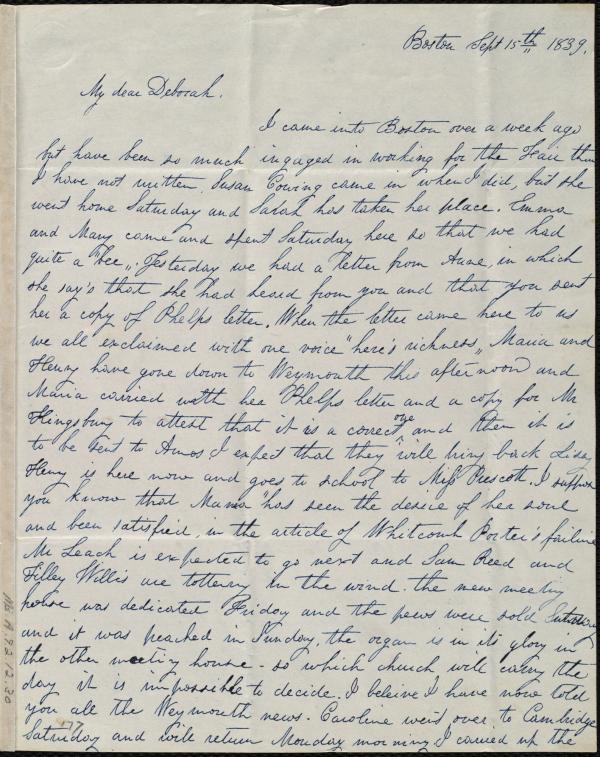 Boston Sept 15th 1839.
My dear Deborah.
I came into Boston over a week ago
but have been so much ingaged in working for the Fair that
I have not written. Susan Cowing came in when I did, but she
went home Saturday and Sarah has taken her place. Emma
and Mary came and spent Saturday here so that we had
quite a "bee". Yesterday we had a letter from Anne, in which
she say's that she had heard from you and that you sent
her a copy of Phelps letter. When the letter came here to us
we all exclaimed with one voice "here's richness" Maria and
Henry have gone down to Weymouth this afternoon and
Maria carried with her Phelps letter and a copy for Mr
Kingsbury to attest that it is a correct one and then it is
to be sent to Amos I expect that they will bring back Lizzy
Henry is here now and goes to school to Miss Prescott. I suppose
you know that Mama "has seen the desire of her soul
and been satisfied, in the article of Whitcomb Porter's failure
Mr Leach is expected to go next and Sam Reed and
Tilley Willis are tottering in the wind. the new meeting
house was dedicated Friday and the pews were sold Saturday
and it was peached in Sunday, the organ is in its glory in
the other meeting house - so which church will carry the
day it is impossible to decide. I beleive I have now told
you all the Weymouth news. Caroline went over to Cambridge
Saturday and will return Monday morning I carried up the
Ms A.9.2.12.30